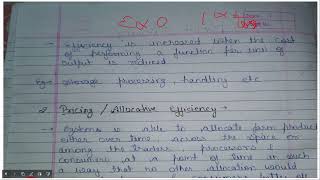 E ∝ O
→ Efficiency is increased when the cost
of performing a function per unit of
output is reduced
Eg → storage processing, handling etc
2. Pricing / Allocative Efficiency →
→ Systems is able to allocate farm produce
either over time, across the space or
among the traders, processors &
consumers at a point of time in such
a way that no other allocation would